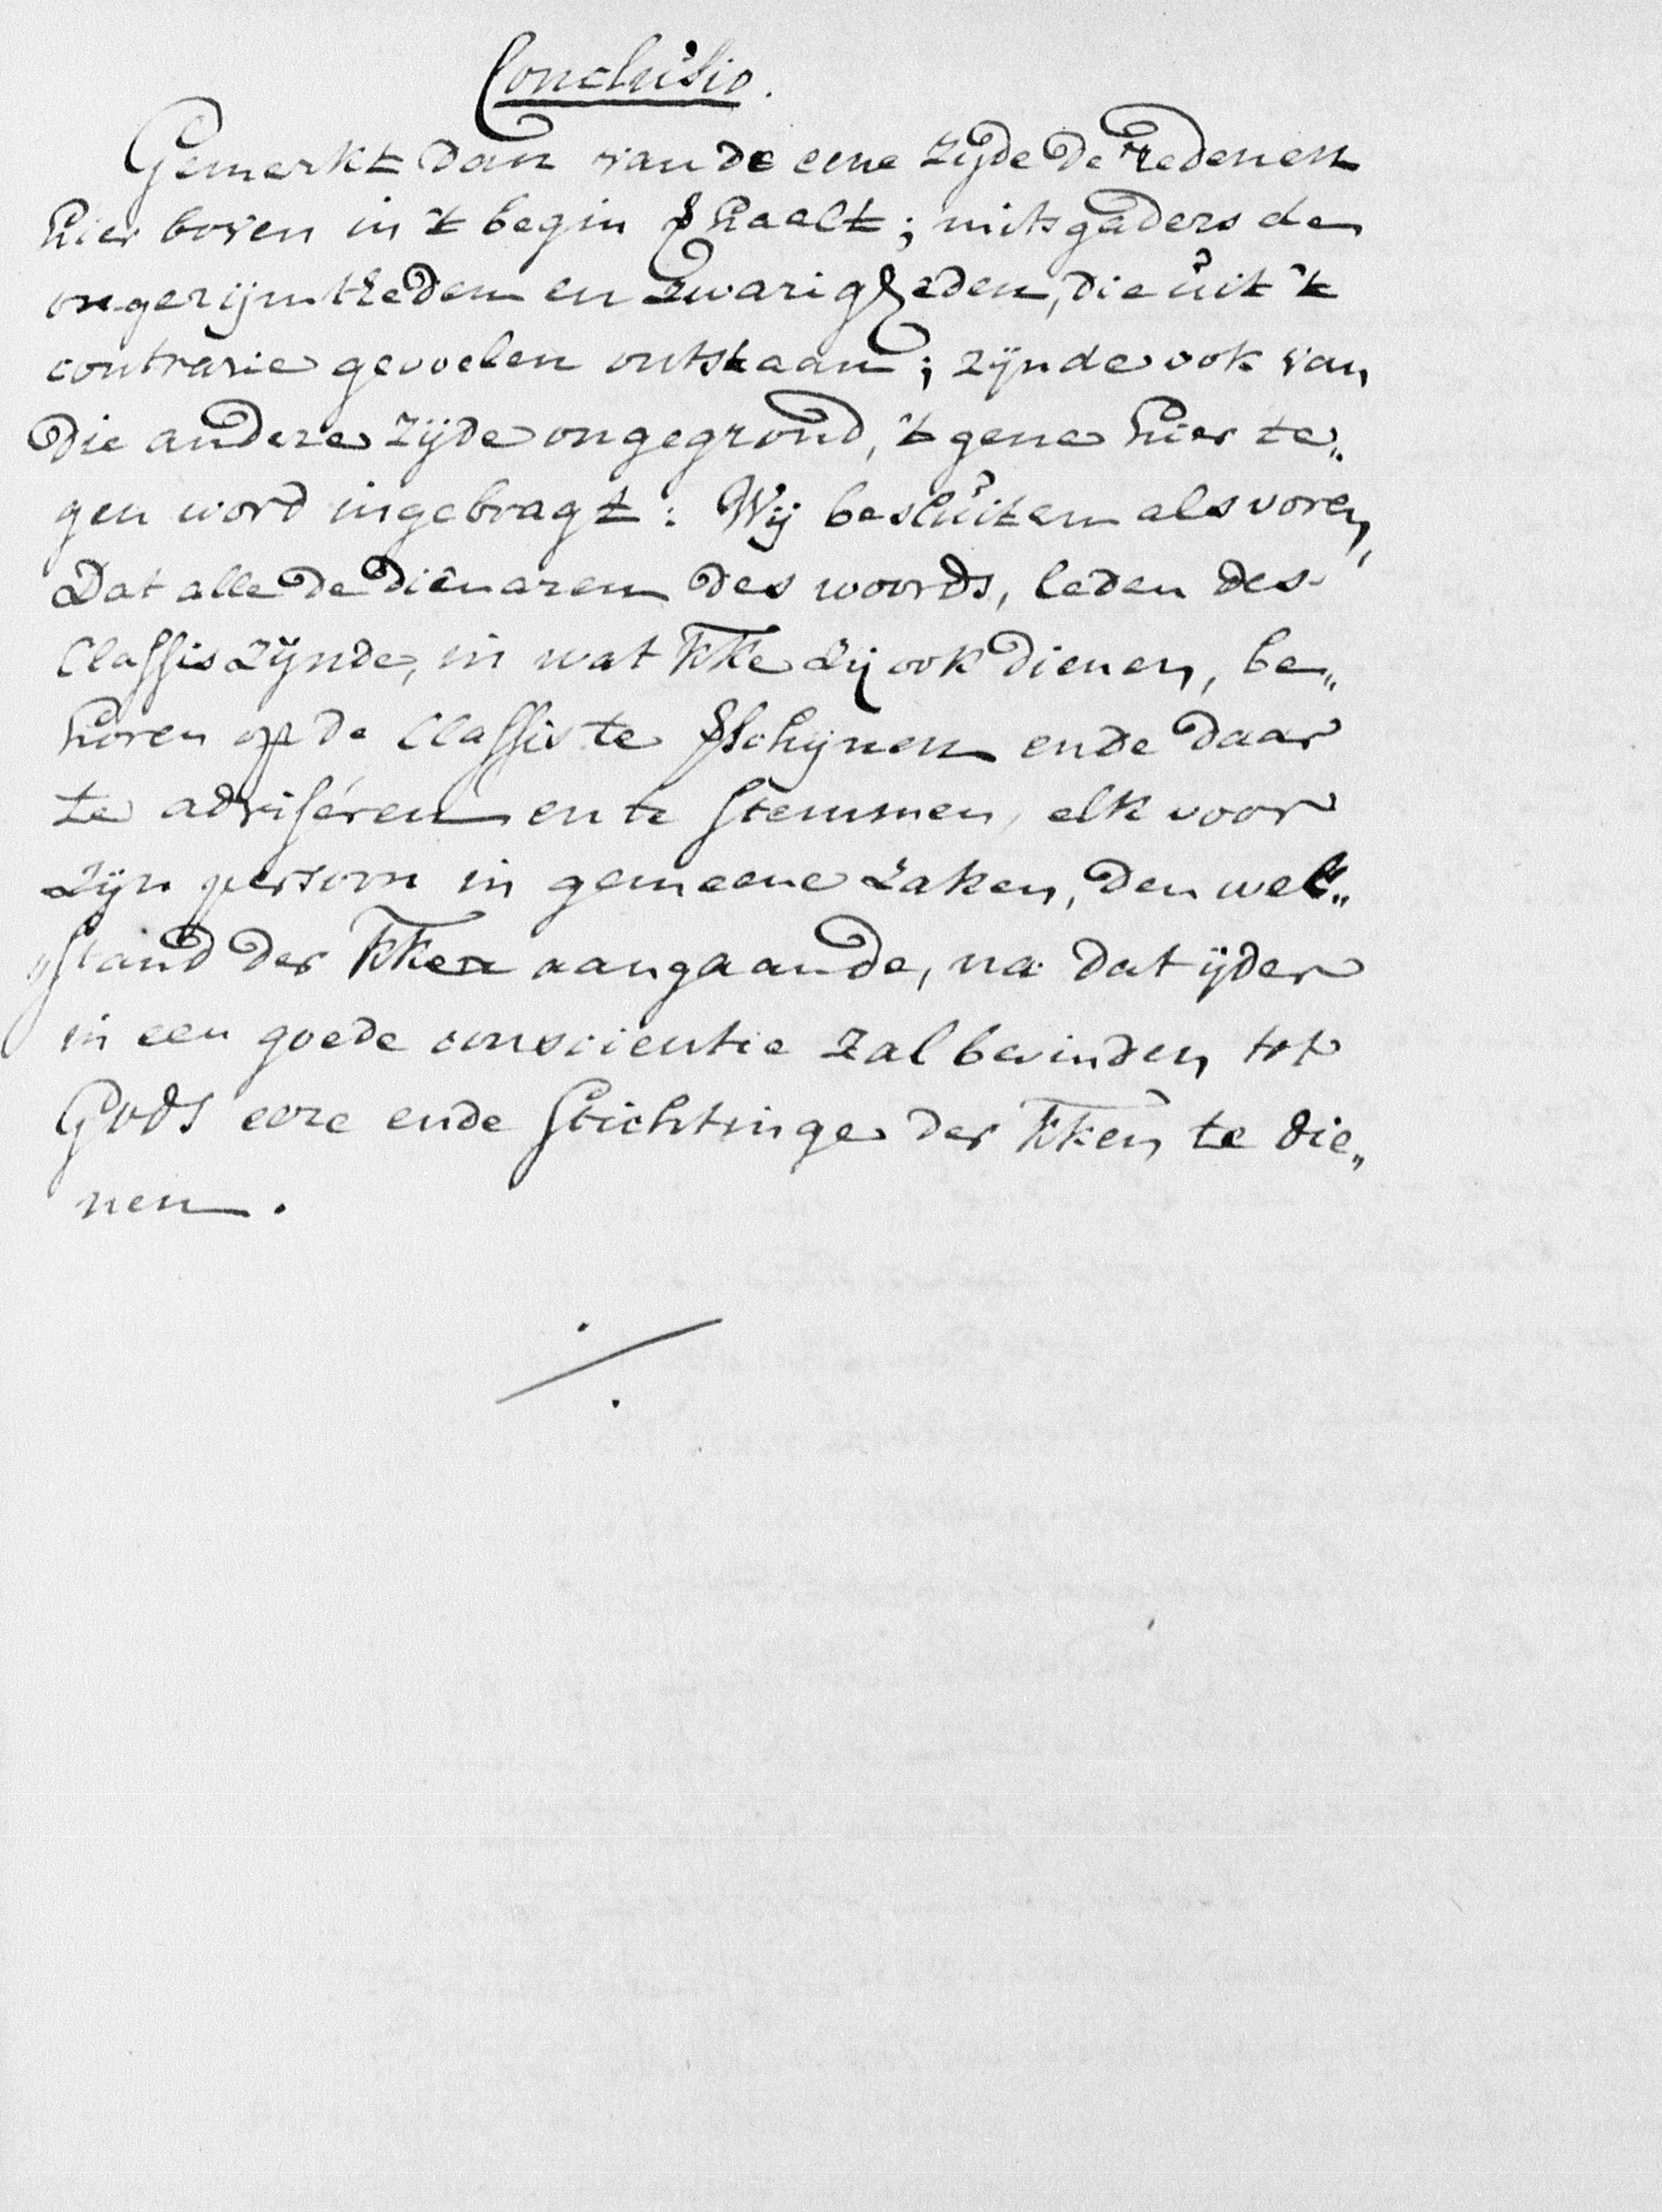 Conclusio.
Gemerkt dan van de eene zijde de redenen
hier boven in 't begin verhaelt; mitsgaders de
ongerijmtheden en zwarigheden, die uit 't
contrarie gevoelen ontstaan; zijnde ook van
die andere zijde ongegrond, 't gene hier te„
gen word ingebragt: Wij besluiten als voren,
Dat alle de dienaren des woords, leden des
Classis zijnde, in wat kke zij ook dienen, be„
horen op de Classis te verschijnen ende daar
te adviseren en te stemmen, elk voor
zijn persoon in gemeene zaken, den wel„
„stand der kken aangaande, na dat ijder
in een goede conscientie zal bevinden tot
Gods eere ende stichtinge der kken te die„
nen.